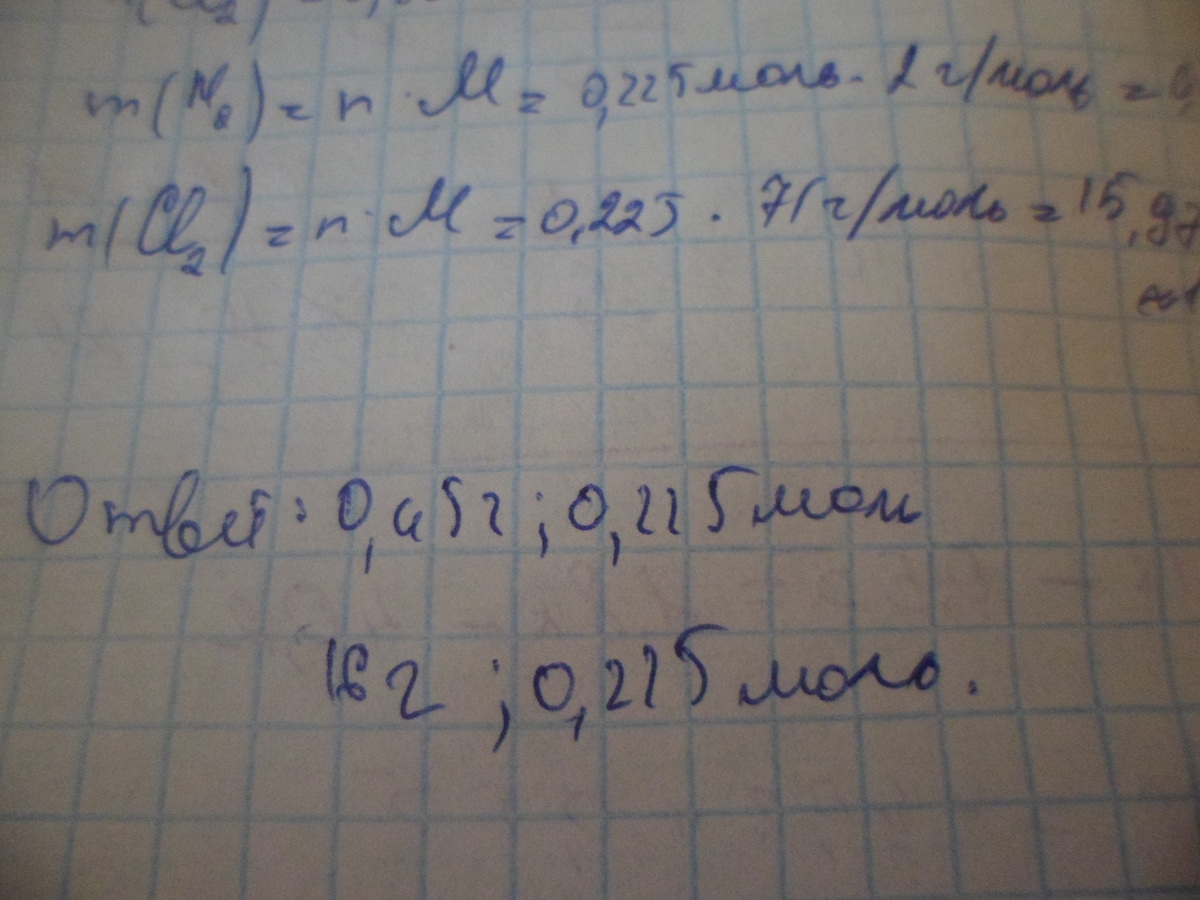 m(H₂) = n · M = 0,225 моль · 2 г/моль = 0,
m(Cl₂) = n · M = 0,225 · 71 г/моль = 15,97
≈1
Ответ: 0,45 г ; 0,225 моль
16 г ; 0,225 моль.